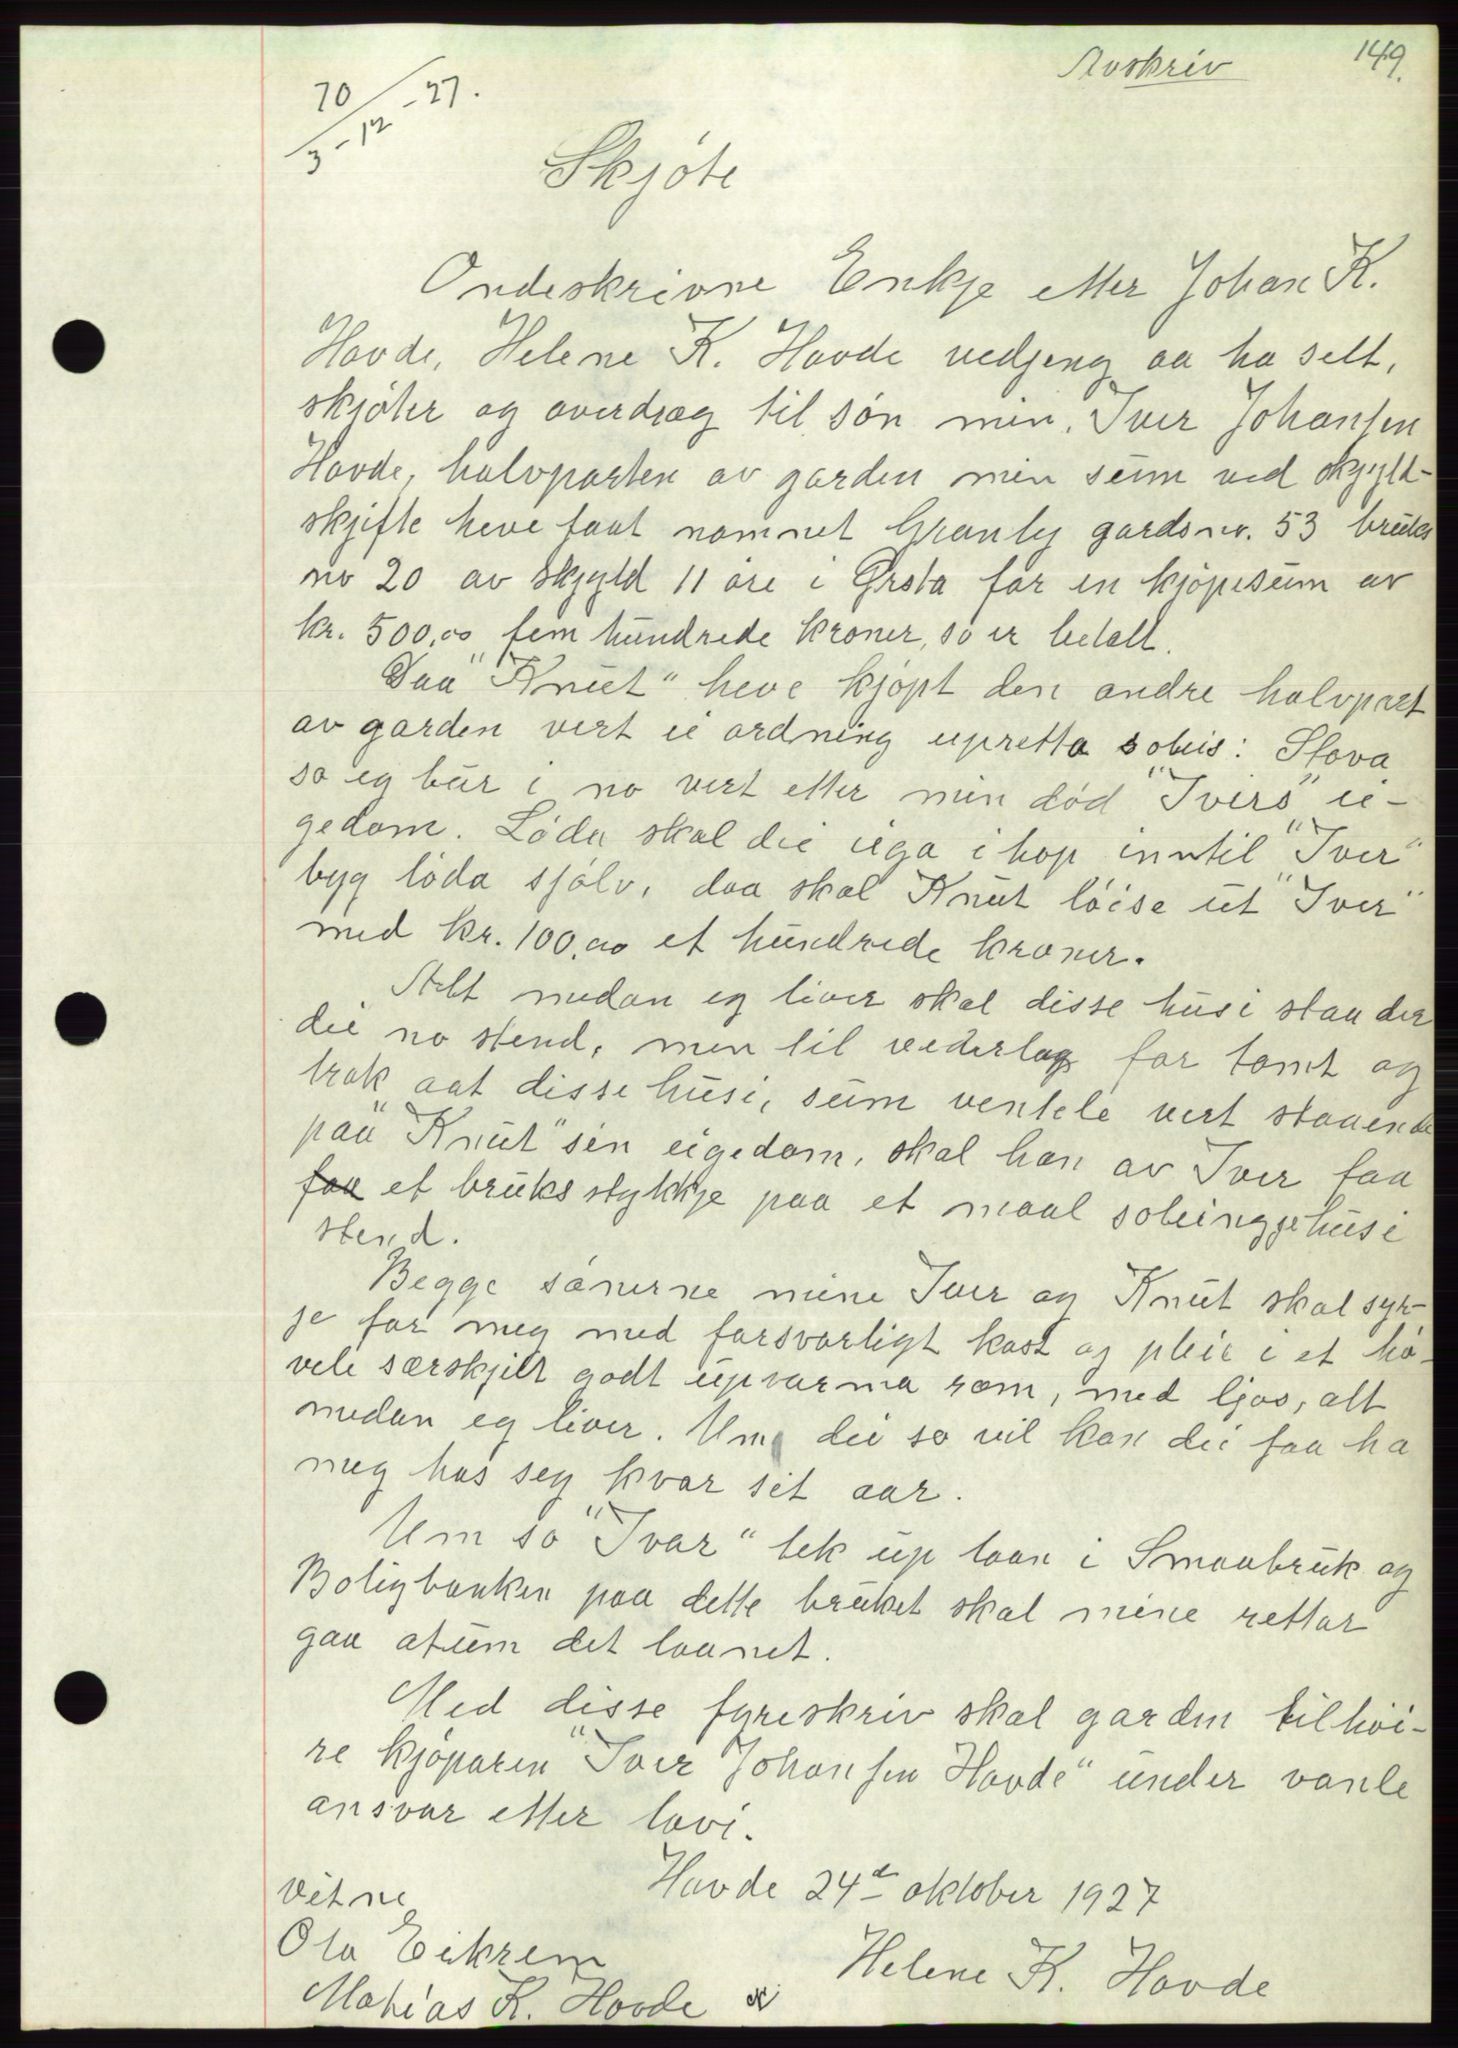 Avskriv 149.
70/3-12-27.
Skjöte
Ondeskrivne Enkje etter Johan K.
Hovde, Helene K. Hovde vedjeng aa ha selt,
skjöter og overdreg til sön min, Iver Johansen
Hovde, halvparten av garden min sum ved skjyld-
skjifte heve faat namnet Granly gardsnr. 53 bruks
nr 20 av skjyld 11 öre i Ørsta for en kjöpesum av
kr. 500,00 fem hundrede kroner, so er betalt.
Daa "Knut" heve kjöpt den andre halvpart
av garden vert ei ordning upretta soleis: Stova
so eg bur i no vert etter min död "Ivers" ei-
gedom. Löda skal dei eiga i hop inntil "Iver"
byg löda sjölv, daa skal Knut löise ut "Iver"
med kr. 100,00 et hundrede kroner.
Alt medan eg liver skal disse husi staa der
dei no stend, men til vederlag for tomt og
trak aat disse husi, sum ventele vert staaende
paa "Knut" sin eigedom, skal han av Iver faa
faa et bruksstykkje paa et maal soleinggje husi
stend.
Begge sönerne mine Iver og Knut skal syr-
je for meg med forsvarligt kost og pleie i et hö-
vele særskjilt godt upvarma rom, med ljos, alt
medan eg liver. Um dei so vil kan dei faa ha
meg hos seg kvar sit aar.
Um so "Ivar" tek up laan i Smaabruk og
Boligbanken paa dette bruket skal mine rettar
gaa atum det laanet.
Med disse fyreskriv skal garden tilhöi-
re kjöparen "Iver Johansen Hovde" under vanle
ansvar etter lovi.
Hovde 24de oktober 1927
vitne
Ola Eikrem
Helene K. Hovde
Matias K. Hovde